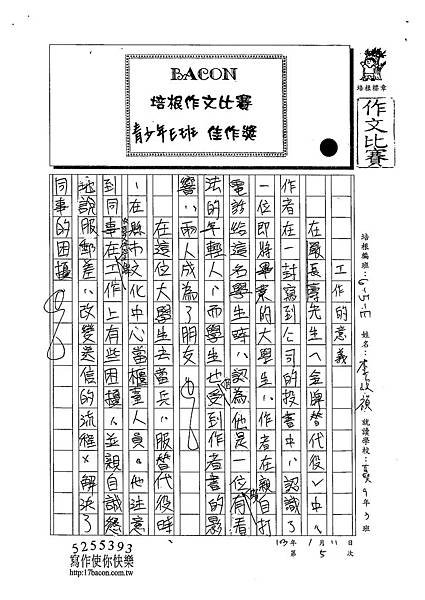 BACON
培根作文比賽
青少年E班 佳作獎
培根標章
作文比賽
培根編班：
姓名：李
就讀學校：
9年3班
103年1月11日
第5次
工作的意義
在嚴長壽先生〈金牌替代役〉中，
作者在一封寫到公司的投書中，認識了
一位即將畢業的大學生，作者在親自打
電話給這名學生時，認為他是一位有看
法的年輕人，而學生也受到作者書的影
響，兩人成為了朋友
在這位大學生去當兵，服替代役時
，在縣市文化中心當櫃臺人員。他注意
到同事在工作上有些困擾，並親自誠懇
地說服郵差，改變送信的流程，解決了
同事的困擾
5255393
寫作使你快樂
http://17bacon.com.tw